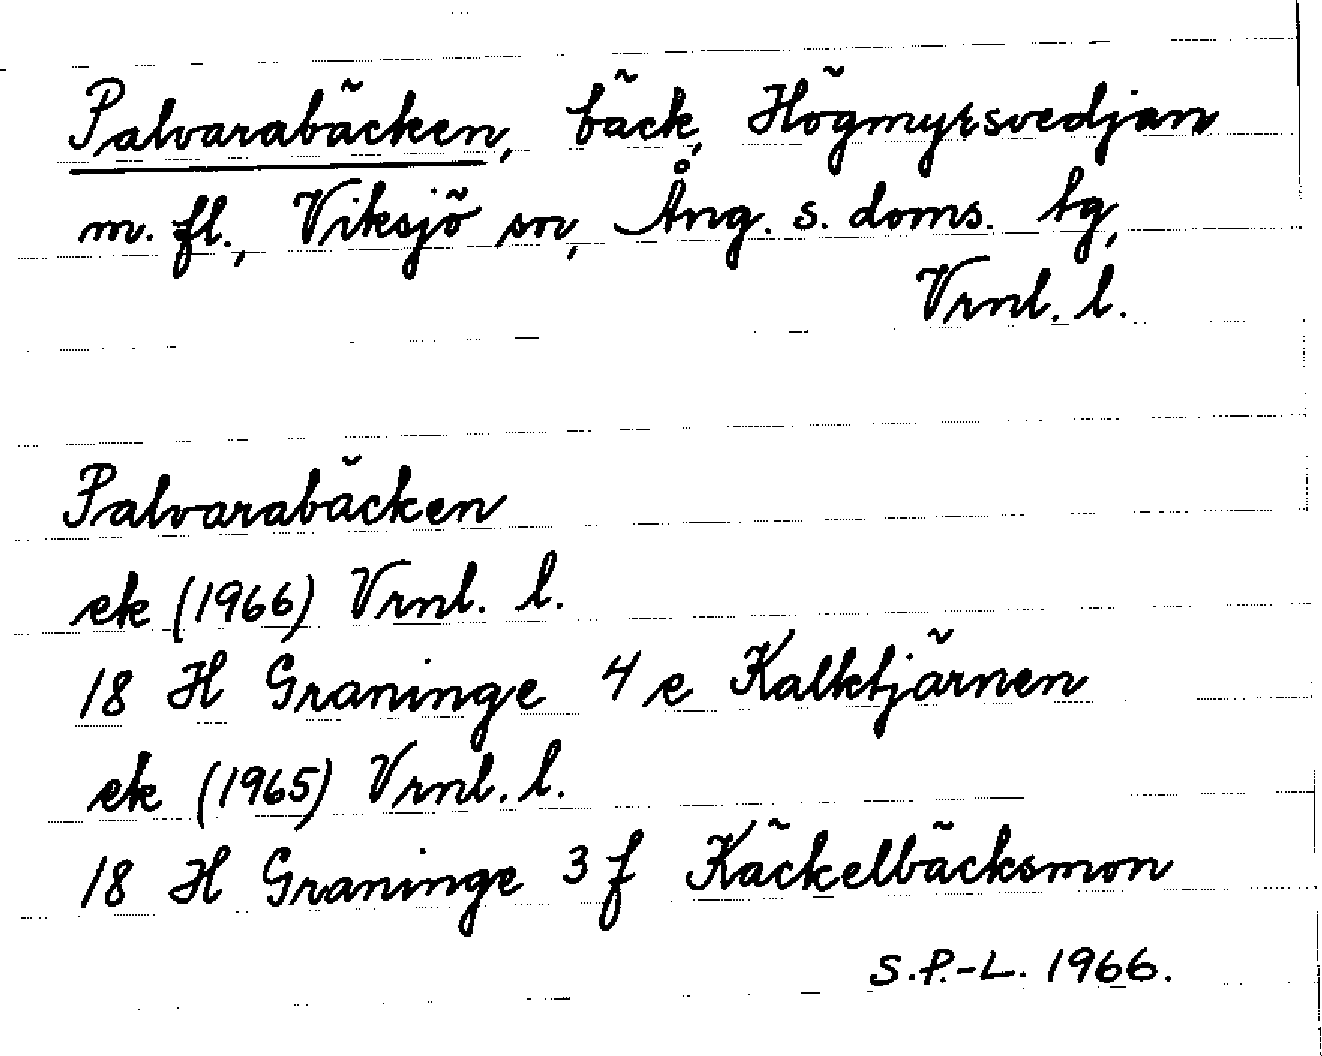 Palvarabäcken, bäck, Högmyrsvedjan
m. fl., Viksjö sn, Ång. s. doms. tg,
Vrnl. l.
Palvarabäcken
ek (1966) Vrnl. l.
18 H Graninge 4 e Kalktjärnen
ek (1965) Vrnl. l.
18 H Graninge 3 f Käckelbäcksmon
S.P.-L. 1966.